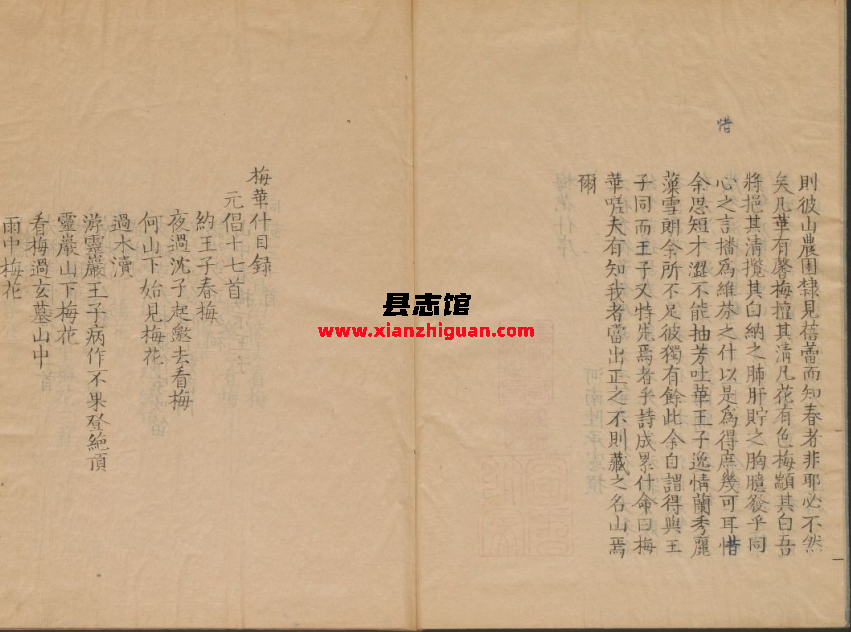 則彼山農園隸見蓓蕾而知春者非耶必不然
矣凡華有馨梅擅其清凡花有色梅顓其白吾
將挹其清攬其白納之肺肝貯之胸臆發乎同
心之言播為維之什以是為得庶幾可耳惜
余思短才澀不能抽芳吐華王子逸情蘭秀麗
藻雪朗余所不足彼獨有餘此余自謂得與王
子同而王子又特先焉者乎詩成累什命曰梅
華嗟夫有知我者當出正之不則藏之名山焉
爾
惜
惜
梅華什目録
元倡十七首
約王子春梅
夜過沈子起邀去看梅
何山下始見梅花
過木瀆
游靈巖王子病作不果登絕頂
靈巖山下梅花
看梅過玄墓山中
雨中梅花
县志馆
www.xianzhiguan.com